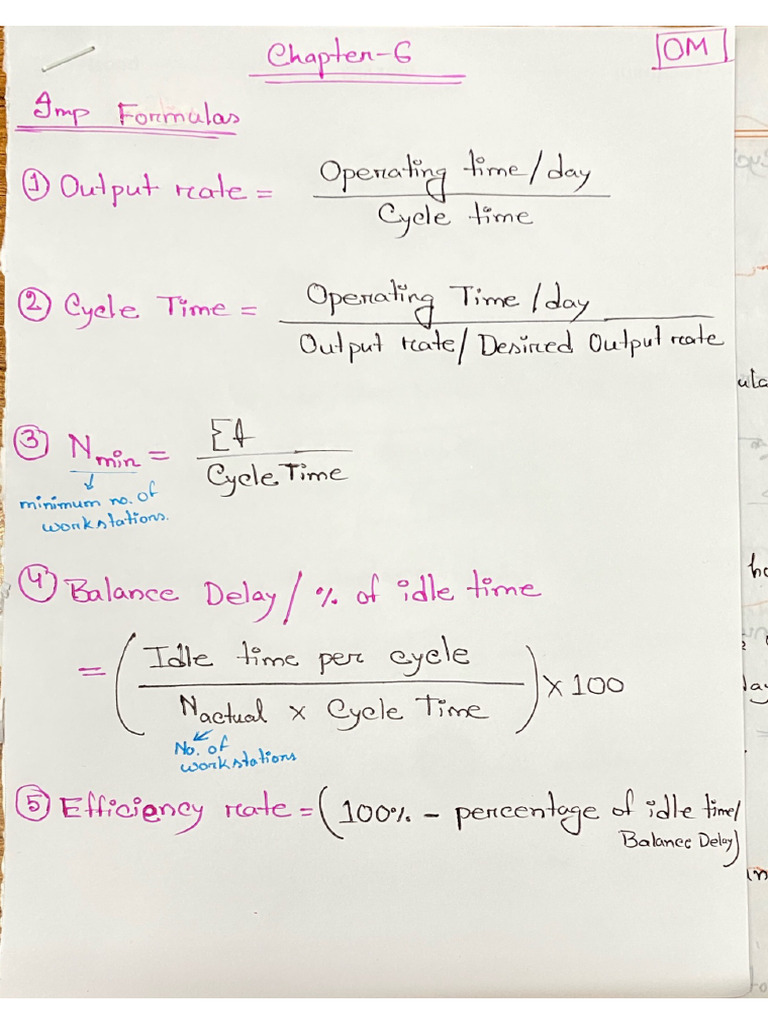 Chapter-6
OM
Imp Formulas
① Output rate = Operating time/day
Cycle time
② Cycle Time = Operating Time/day
Output rate/Desired Output rate
③ Nmin = Σt
Cycle Time
minimum no. of
workstations.
④ Balance Delay/ % of idle time
= (Idle time per cycle
Nactual x Cycle Time) x 100
No. of
workstations
⑤ Efficiency rate = (100% - percentage of idle time/
Balance Delay)